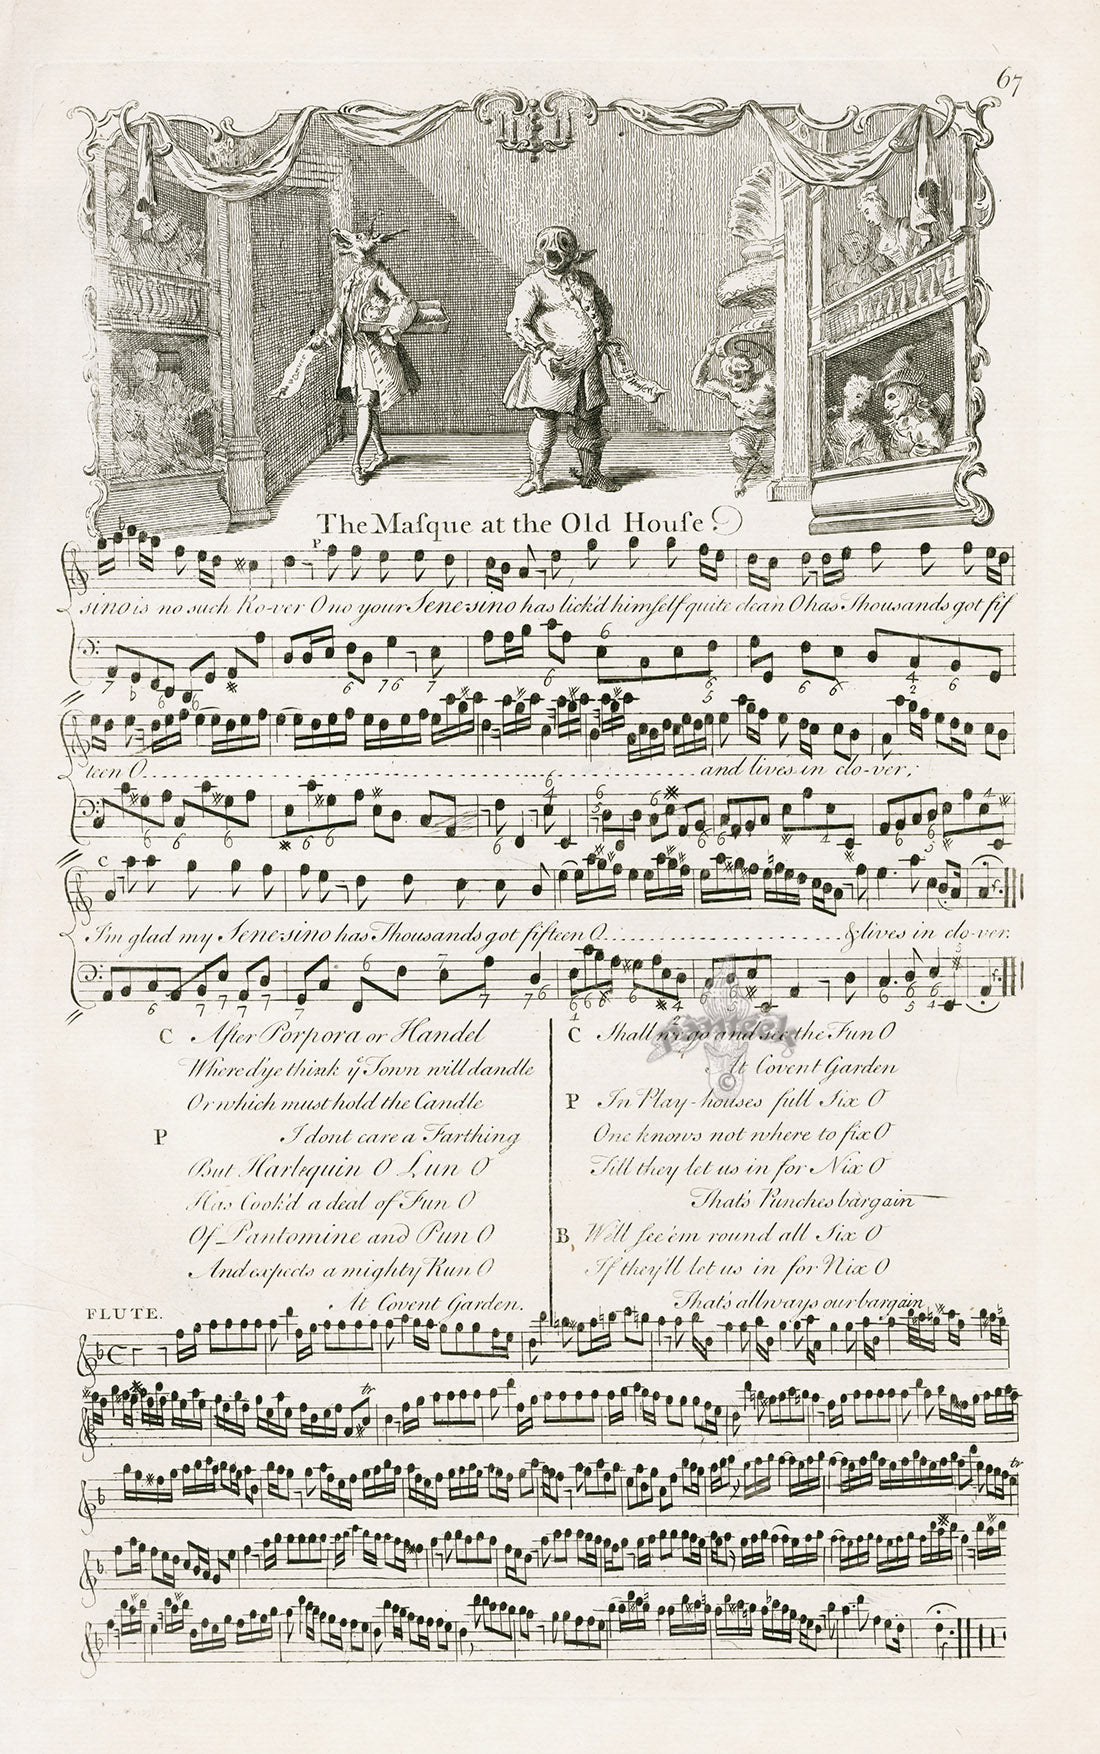 67
The Maſque at the Old Houſe.
P
sino is no such Ro-ver O no your Senesino has lick'd himself quite clean O has Thousands got fif
teen O and lives in clo-ver;
C
I'm glad my Senesino has Thousands got fifteen O & lives in clo-ver.
C After Porpora or Handel
Where d'ye think yᵉ Town will dandle
Or which must hold the Candle
P I dont care a Farthing
But Harlequin O Lun O
Has Cook'd a deal of Fun O
Of Pantomine and Pun O
And expects a mighty Run O
At Covent Garden.
C Shall we go and see the Fun O
At Covent Garden
P In Play-houses full Six O
One knows not where to fix O
Till they let us in for Nix O
That's Punches bargain
B We'll ſee'em round all Six O
If they'll let us in for Nix O
That's allways our bargain
FLUTE.
tr
tr